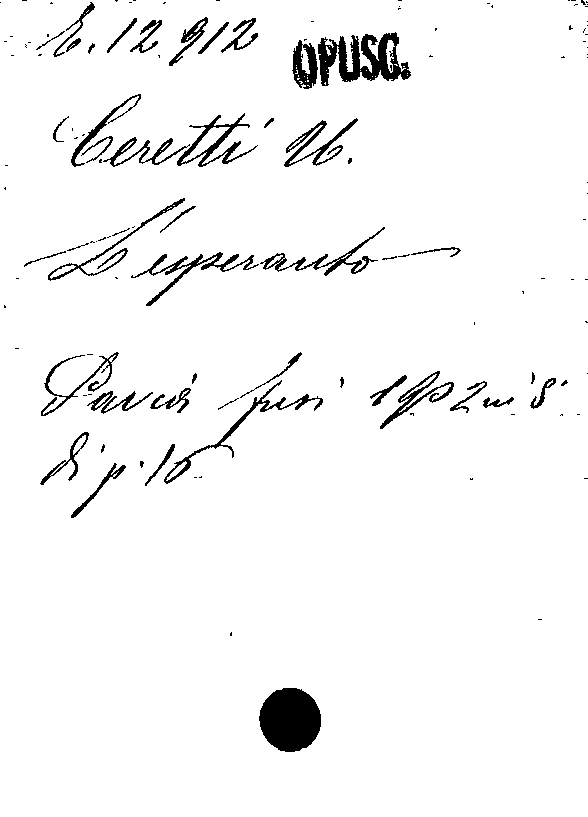 E. 12 912
OPUSC.
Ceretti U.
L'esperanto
Pavia fusi 1912 in 8°
di p. 16